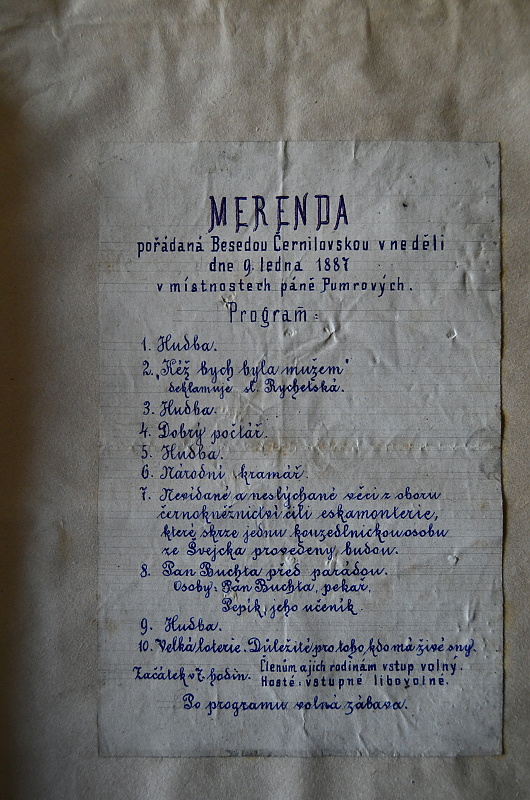 MERENDA
pořádaná Besedou Černilovskou v neděli
dne 9. ledna 1887
v místnostech páně Pumrových.
Program:
1. Hudba.
2. „Kéž bych byla mužem"
deklamuje sl. Rychetská.
3. Hudba.
4. Dobrý počtář.
5. Hudba.
6. Národní kramář.
7. Nevídané a neslýchané věci z oboru
černokněžnictví čili eskamonterie,
které skrze jednu kouzedlnickou osobu
ze Švejcka provedeny budou.
8. Pan Buchta před parádou.
Osoby: Pan Buchta, pekař,
Pepík, jeho učeník.
9. Hudba.
10. Velká loterie. Důležité pro toho, kdo má živé sny.
Začátek v 7. hodin. Členům a jich rodinám vstup volný.
Hosté: vstupné libovolné.
Po programu volná zábava.